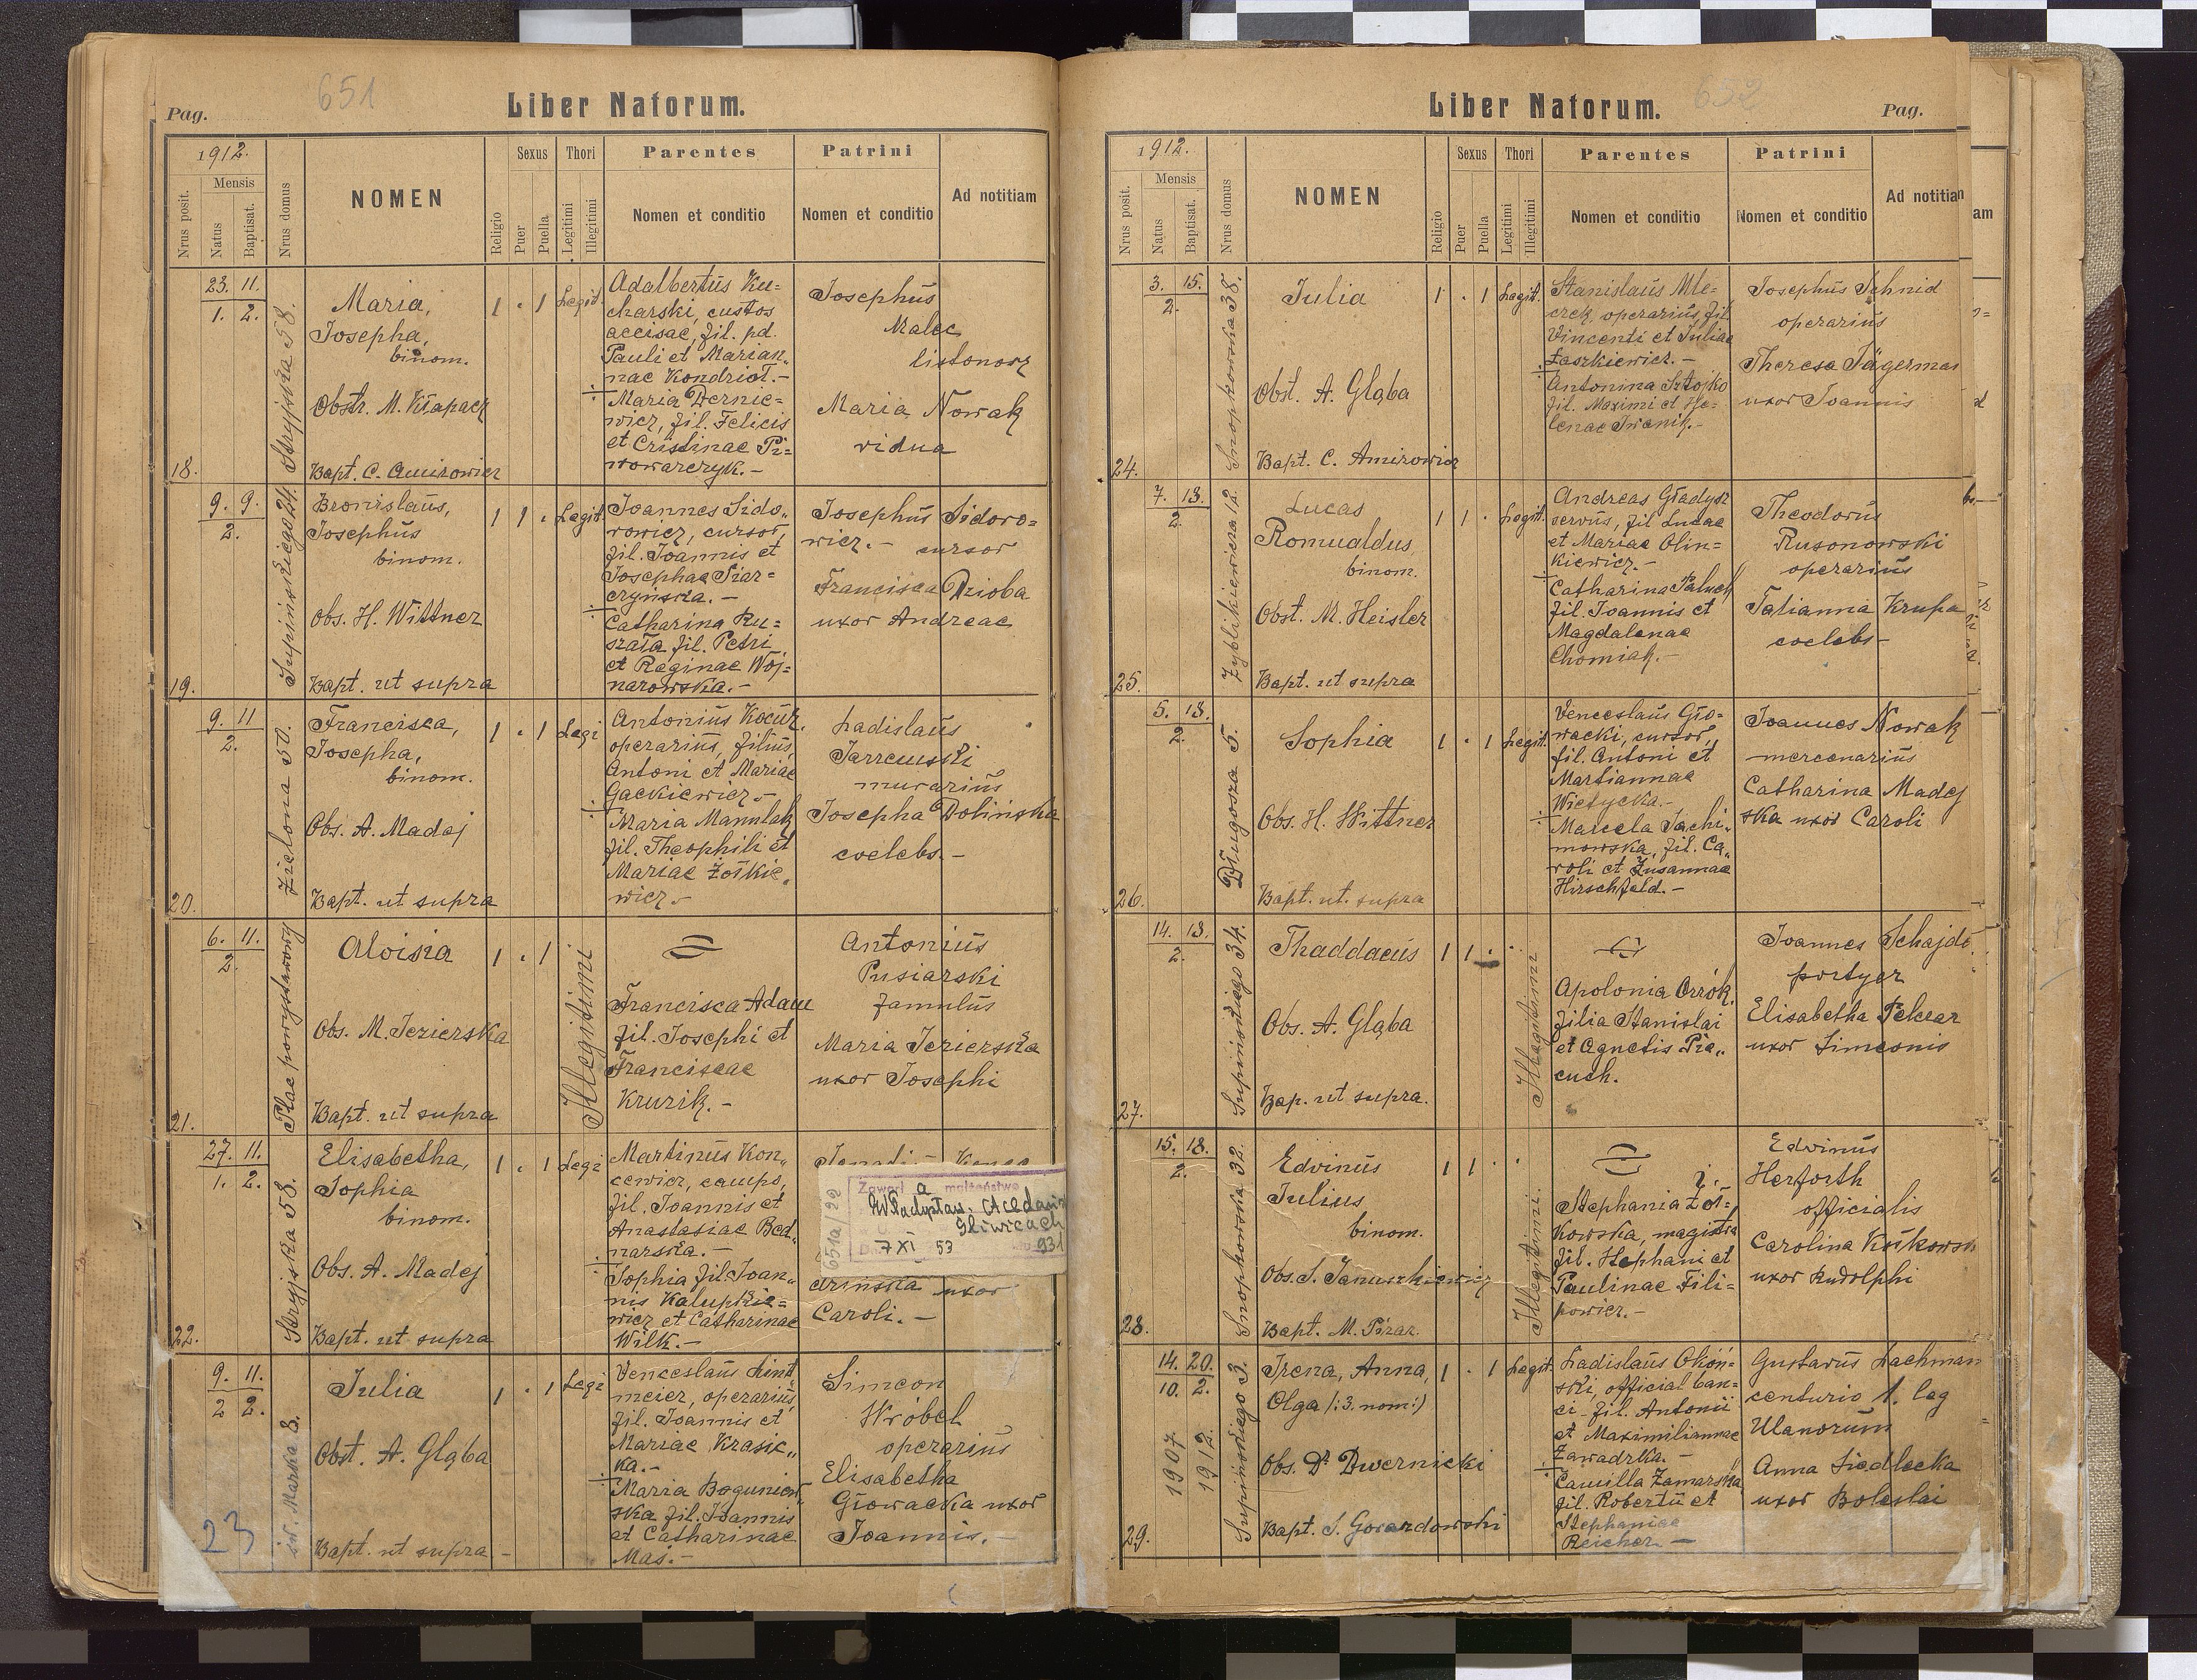 651
Pag.
Liber Natorum.
1912.
Nrus posit.
Mensis
Natus
Baptisat.
Nrus domus
NOMEN
Religio
Sexus
Puer
Puella
Thori
Legitimi
Illegitimi
Parentes
Nomen et conditio
Patrini
Nomen et conditio
Ad notitiam
18.
23. 11.
1. 2.
Stryjska 58.
Maria,
Josepha,
binom.
Obstr. M. Kłapacz
Bapt. C. Amirowicz
1 . 1 Legit.
Adalbertus Ku=
charski, custos
accisae, fil. pd.
Pauli et Marian„
nae Kondriot.-
Maria Dernie=
wicz, fil. Felicis
et Cristinae Pi=
wowarczyk.-
Josephus
Malec
listonosz
Maria Nowak
vidua
19.
9. 9.
2.
Supinskiego 24.
Bronislaus,
Josephus
binom.
Obs. H. Wittner
Bapt. ut supra
1 1 . Legit.
Joannes Sido„
rowicz, cursor,
fil. Joannis et
Josephae Siar=
czyńska.-
Catharina Ku=
szała fil. Petri
et Reginae Woj=
narowska.-
Josephus Sidoro=
wicz.- cursor
Francisca Dzioba
uxor Andreae
20.
9. 11
2.
Zielona 50.
Francisca,
Josepha,
binom.
Obs. A. Madej
Bapt. ut supra
1 . 1 Legi
Antonius Kocur.
operarius, filius
Antoni et Mariae
Gackiewicz.-
Maria Manulak
fil. Theophili et
Mariae Żołkie„
wicz.-
Ladislaus
Jarremski
murarius
Josepha Dolinska
coelebs.-
21.
6. 11.
2.
Plac powystawowy
Aloisia
Obs. M. Jezierska
Bapt. ut supra
1 . 1
Illegitimi
Francisca Adam
fil. Josephi et
Franciscae
Kruzik.-
Antonius
Pusiarski
famulus
Maria Jezierska
uxor Josephi
22.
27. 11.
1. 2.
Stryjska 58.
Elisabetha,
Sophia
binom.
Obs. A. Madej
Bapt. ut supra
1 . 1 Legi
Martinus Kon„
cewicz, campo,
fil. Joannis et
Anastasiae Bed„
narska.-
Sophia fil. Joan„
nis Kalupkie=
wicz et Catharinae
Wilk.-
651a/22
Zawarł a małżeństwo
Gliwicach
7 XI 53
931
uxor
Caroli.-
23
9. 11.
2 2.
św. Marka 8.
Julia
Obst. A. Głąba
Bapt. ut supra -
1 . 1 Legi
Venceslaus Lint
meier, operarius
fil. Joannis et
Mariae Krasic„
ka.-
Maria Boguniew„
ska fil. Joannis
et Catharinae
Mas.-
Simeon
Wróbel
operarius
Elisabetha
Głowacka uxor
Joannis.-
652
Liber Natorum.
Pag.
1912.
Nrus posit.
Mensis
Natus
Baptisat.
Nrus domus
NOMEN
Religio
Sexus
Puer
Puella
Thori
Legitimi
Illegitimi
Parentes
Nomen et conditio
Patrini
Nomen et conditio
Ad notitian
am
24.
3. 15.
2.
Snopkowska 38.
Julia
Obst. A. Głąba
Bapt. C. Amirowicz
1 . 1 Legit.
Stanislaus Mle=
czek, operarius, fil.
Vincenti et Juliae
Łaszkiewicz.-
Antonina Sztojko
fil. Maximi et He=
lenae Iwanik.-
Josephus Schnid
operarius
Theresa Jägerman
uxor Joannis
25.
7. 13.
2.
Zyblikiewicza 12.
Lucas
Romualdus,
binom.
Obst. M. Heisler
Bapt. ut supra
1 1 . Legit.
Andreas Gładysz
servus, fil Lucae
et Mariae Olin=
kiewicz.-
Catharina Paluch
fil. Joannis et
Magdalenae
Chomiak.-
Theodorus
Rusonowski
operarius
Tatianna Krupa
coelebs-
26.
5. 13.
2.
Długosza 5.
Sophia
Obs. H. Wittner
Bapt. ut. supra
1 . 1 Legit.
Venceslaus Gło=
wacki, cursor,
fil. Antoni et
Martiannae
Wietycka.-
Marcela Jachi„
mowska, fil. Ca„
roli et Zusannae
Hirschfeld.-
Joannes Nowak
mercenarius
Catharina Madej
ska uxor Caroli
27.
14. 13.
2.
Supinskiego 34.
Thaddaeus
Obs. A. Głąba
Bap. ut supra.
1 1 .
Illegitimi
Apolonia Orrók.
filia Stanislai
et Agnetis Pie„
cuch.
Joannes Schajdt
portyer
Elisabetha Pekar
uxor Simeonis
28.
15. 18.
2.
Snopkowska 32.
Edvinus
Julius
binom.
Obs. S. Januszkiewicz
Bapt. M. Pirar.
1 1 .
Illegitimi.
Stephania Żół=
kowska, magistra
fil. Stephani et
Paulinae Fili=
powicz.-
Edvinus
Herforth
officialis
Carolina Kośkowsk
uxor Rudolphi
29.
14. 20.
10. 2.
1907
1912.
Supinskiego 3.
Irena, Anna,
Olga /:3. nom:/
Obs. Dr Dwernicki
Bapt. S. Gorardowski
1 . 1 Legit.
Ladislaus Okóń=
ski, official ban=
ci fil. Antonii
et Maximiliannae
Zawadzka.-
Camilla Zamarska
fil. Robertii et
Stephaniae
Reicher-
Gustavus Lachman
centurio 1. leg
Ulanorum
Anna Siedlecka
uxor Boleslai